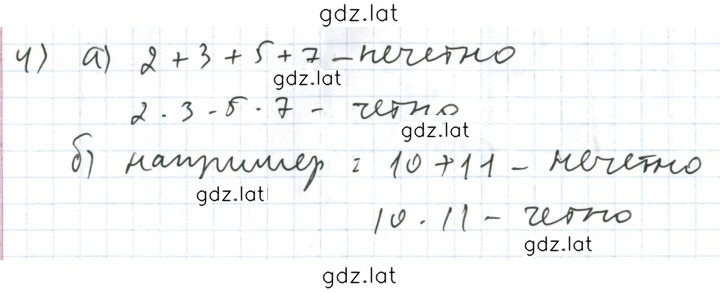 gdz.lat
4) а) 2 + 3 + 5 + 7 – нечетно
gdz.lat
2 · 3 · 5 · 7 – четно
gdz.lat
б) например : 10 + 11 – нечетно
gdz.lat
10 · 11 – четно
gdz.lat
gdz.lat